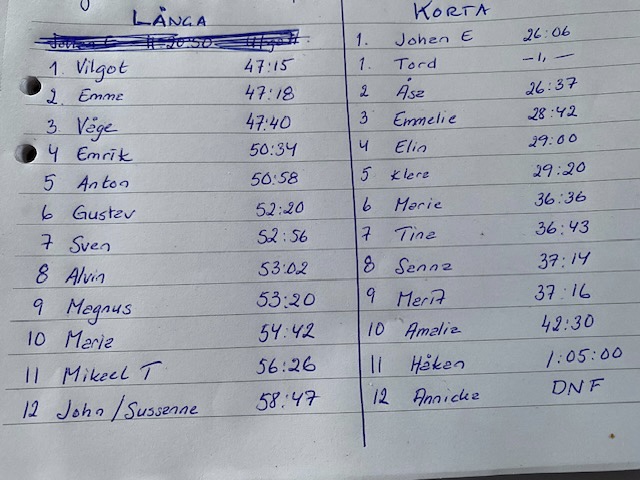 LÅNGA
1. Vilgot 47:15
2. Emma 47:18
3 Våge 47:40
4 Emrik 50:34
5 Anton 50:58
6 Gustav 52:20
7 Sven 52:56
8 Alvin 53:02
9 Magnus 53:20
10 Maria 54:42
11 Mikael T 56:26
12 John/Susanne 58:47
KORTA
1. Johan E 26:06
1. Tord —11—
2 Åsa 26:37
3 Emmelie 28:42
4 Elin 29:00
5 Klara 29:20
6 Marie 36:36
7 Tina 36:43
8 Sanna 37:14
9 Marit 37:16
10 Amalia 42:30
11 Håkan 1:05:00
12 Annicka DNF